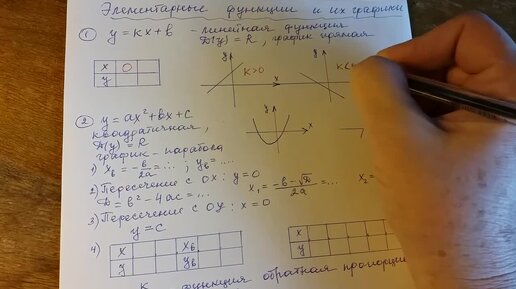 Элементарные функции и их графики
① y = kx + b - линейная функция
D(y) = R, график прямая
x 0
y
y
k>0
x
y
k<
② y = ax² + bx + c
квадратичная,
D(y) = R
график - парабола
y
x
1) xв = -b/2a = ... , yв = ...
2) Пересечение с OX: y = 0
D = b² - 4ac = ... x₁ = (-b - √D)/2a = ... x₂ =
3) Пересечение с OY: x = 0
y = c
4)
x xв
y yв
x
y
функция обратная пропорци